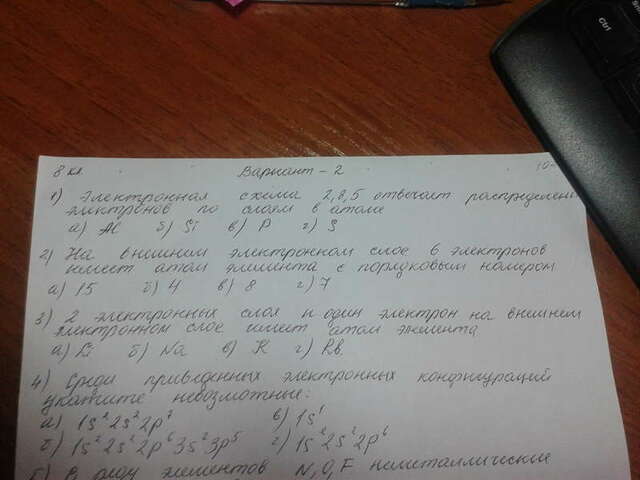 8 кл Вариант - 2 10-
1) Электронная схема 2,8,5 отвечает распределени
электронов по слоям в атоме
а) Al б) Si в) P г) S
2) На внешнем электронном слое 6 электронов
имеет атом элемента с порядковым номером
а) 15 б) 4 в) 8 г) 7
3) 2 электронных слоя и один электрон на внешнем
электронном слое имеет атом элемента
а) Li б) Na в) K г) Rb
4) Среди приведенных электронных конфигураций
укажите невозможные:
а) 1s² 2s² 2p⁷ в) 1s¹
б) 1s² 2s² 2p⁶ 3s² 3p⁵ г) 1s² 2s² 2p⁶
5) В ряду элементов N, O, F неметаллические
Ctrl